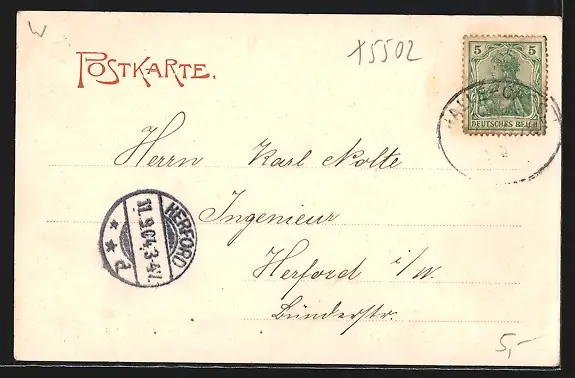 W
X5502
POSTKARTE.
5 5
DEUTSCHES REICH
Herrn Karl Nolte
Ingenieur
Herford i/W.
Bünderstr.
HERFORD
11.9.04.3-4N.
* * d
5,-